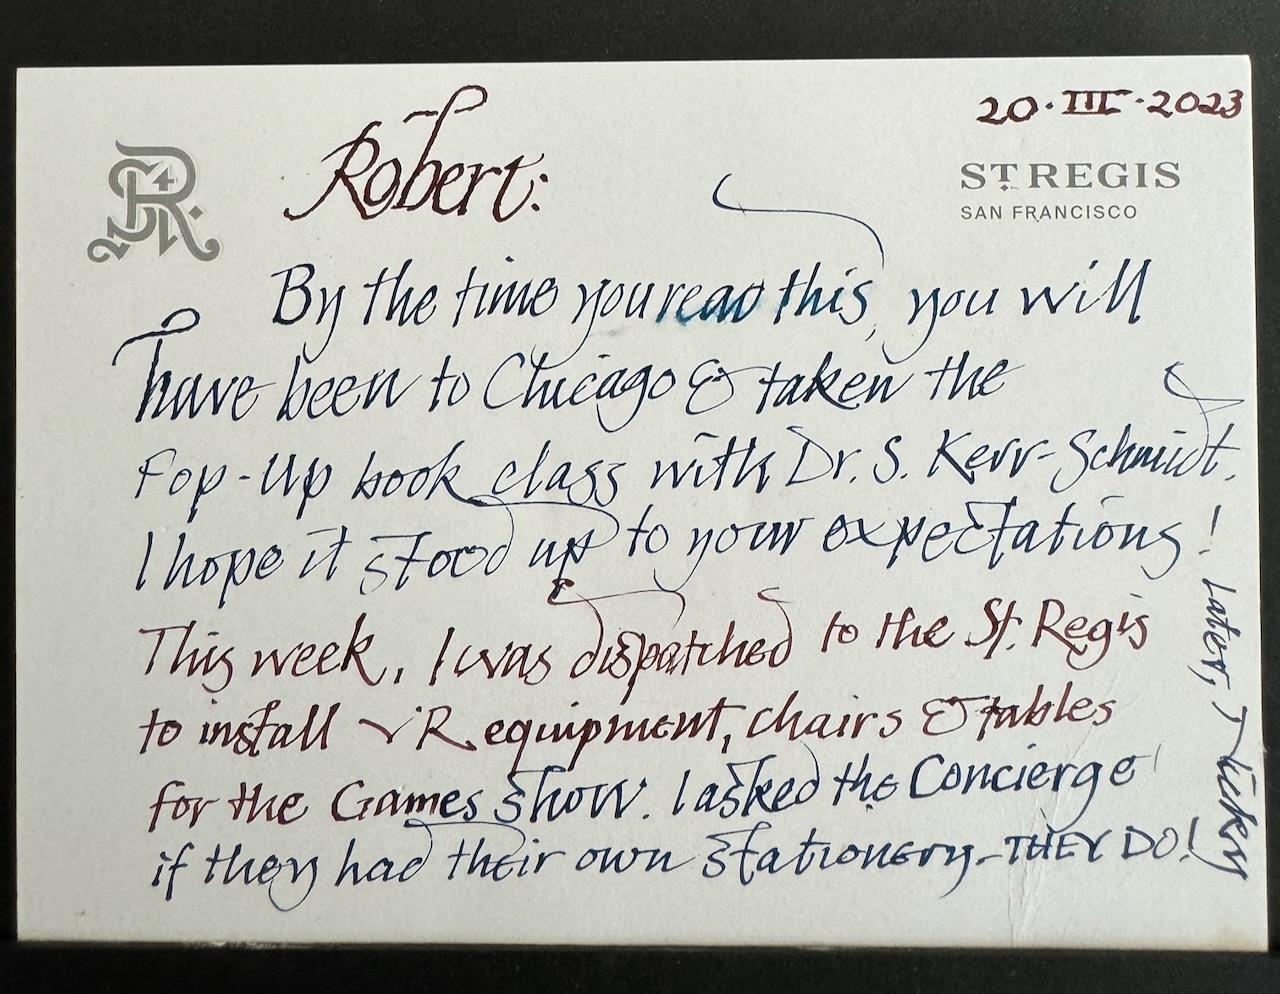 20·III·2023
ST REGIS
SAN FRANCISCO
Robert:
By the time you read this, you will
have been to Chicago & taken the
Pop-Up book class with Dr. S. Kerr-Schmidt.
I hope it stood up to your expectations!
This week, I was dispatched to the St. Regis
to install VR equipment, chairs & tables
for the Games Show. I asked the Concierge
if they had their own stationery-THEY DO!
Later,